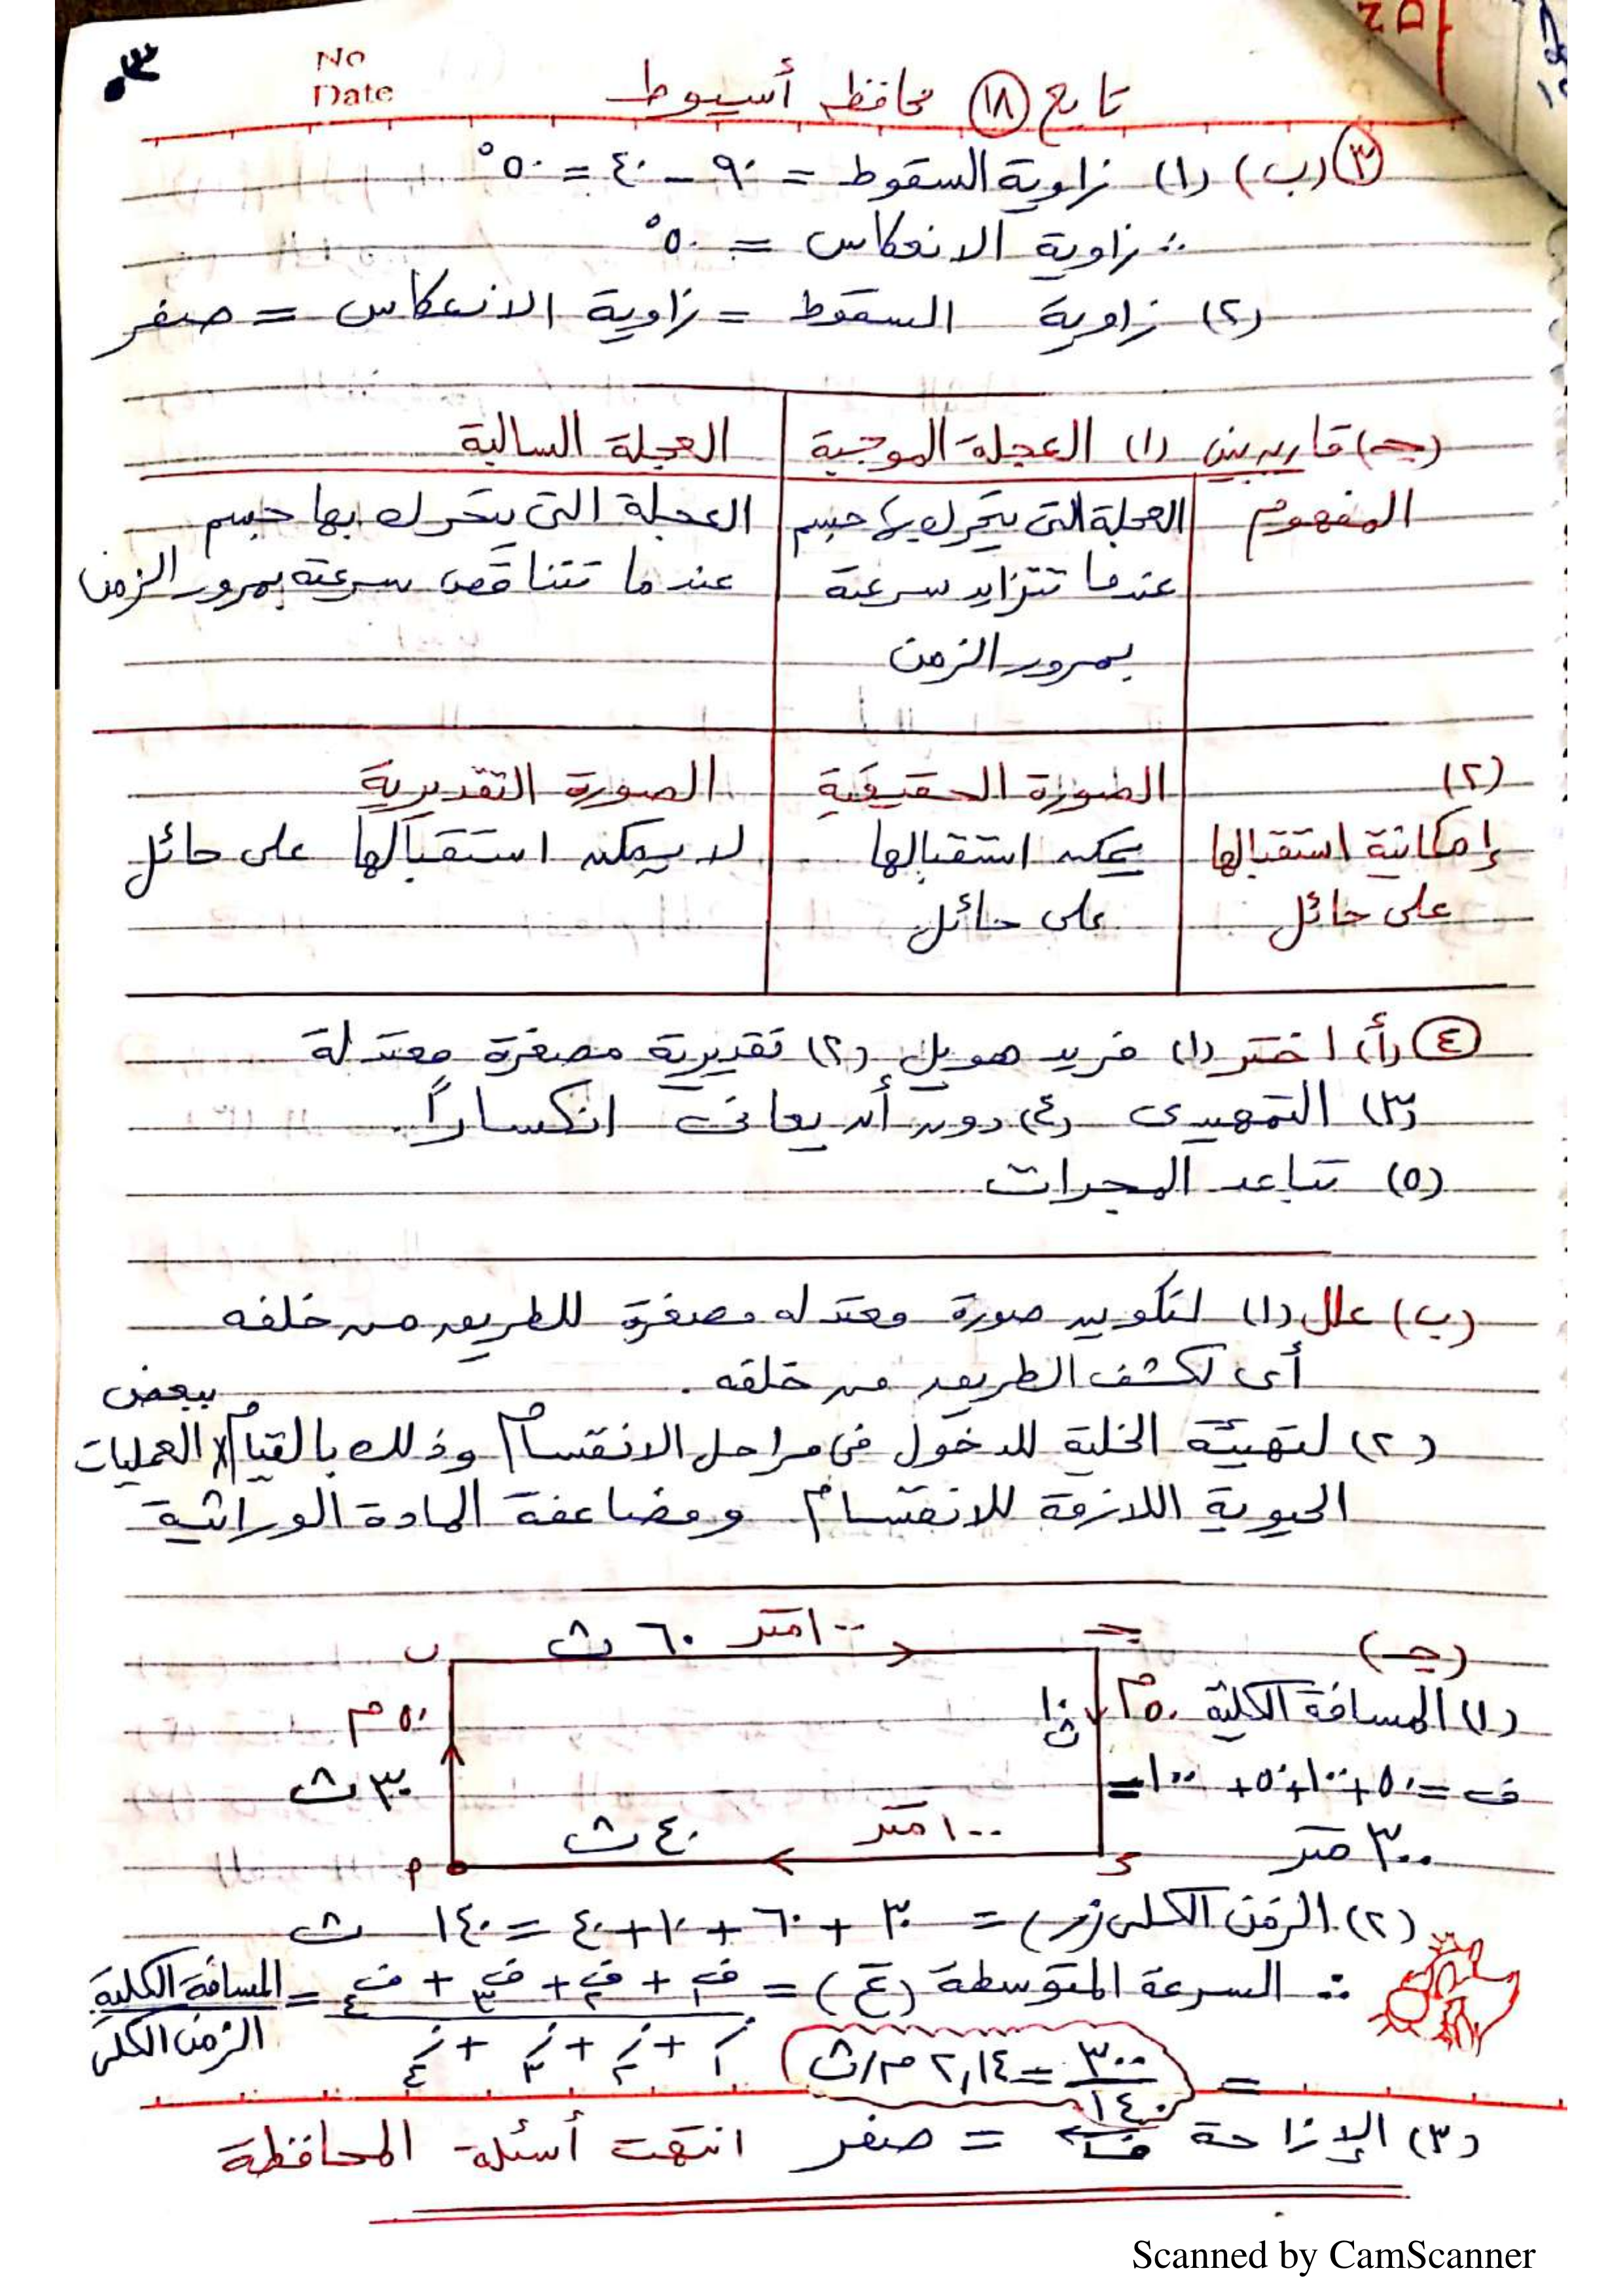 No
Date
تابع (١٨) محافظة أسيوط
(٣) (ب) (١) زاوية السقوط = ٩٠ - ٤٠ = ٥٠°
∴ زاوية الانعكاس = ٥٠°
(٢) زاوية السقوط = زاوية الانعكاس = صفر
(جـ) قارن بين (١) العجلة الموجبة | العجلة السالبة
المفهوم | العجلة التى يتحرك بها جسم | العجلة التى يتحرك بها جسم
عندما تتزايد سرعته | عندما تتناقص سرعته بمرور الزمن
بمرور الزمن
(٢) | الصورة الحقيقية | الصورة التقديرية
إمكانية استقبالها | يمكن استقبالها | لا يمكن استقبالها على حائل
على حائل | على حائل
(٤) (أ) اختر (١) فريد هويل (٢) تقديرية مصغرة معتدلة
(٣) التمهيدى (٤) دون أن يعانى انكساراً.
(٥) تباعد المجرات
(ب) علل (١) لتكوين صورة معتدله مصغرة للطريق من خلفه
أى لكشف الطريق من خلفه.
(٢) لتهيئة الخلية للدخول فى مراحل الانقسام وذلك بالقيام ببعض العمليات
الحيوية اللازمة للانقسام ومضاعفة المادة الوراثية
(جـ)
ب ٦٠ ث ١٠٠ متر جـ
(١) المسافة الكلية
٥٠ م ١٠ ث
٥٠ م
٣٠ ث
ف = ٥٠ + ١٠٠ + ٥٠ + ١٠٠ =
٣٠٠ متر
٤٠ ث ١٠٠ متر
أ د
(٢) الزمن الكلى (ز) = ٣٠ + ٦٠ + ١٠ + ٤٠ = ١٤٠ ث
∴ السرعة المتوسطة (ع) = ف١ + ف٢ + ف٣ + ف٤ = المسافة الكلية
ز١ + ز٢ + ز٣ + ز٤ الزمن الكلى
= ٣٠٠/١٤٠ = ٢,١٤ م/ث
(٣) الإزاحة ف = صفر انتهت أسئلة المحافظة
Scanned by CamScanner